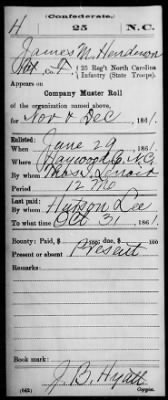 (Confederate.)
H 25 N.C.
James M. Henderson
Pvt, Co. F, 25 Reg't North Carolina
Infantry (State Troops).
Appears on
Company Muster Roll
of the organization named above,
for Nov & Dec, 1861.
Enlisted:
When June 29, 1861.
Where Haywood Co N.C.
By whom Thos. I. Lenoir
Period 12 Mo
Last paid:
By whom Hutson Lee
To what time Oct 31, 1861.
Bounty: Paid, $ 100; due, $ 100
Present or absent Present
Remarks:
Book mark:
J. B. Hyatt
(642) Copyist.